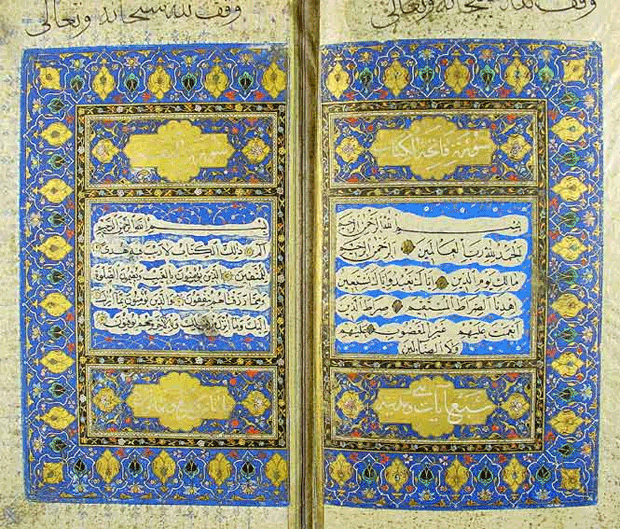 وقف لله سبحانه وتعالى
سورة فاتحة الكتاب
بسم الله الرحمن الرحيم
الحمد لله رب العالمين الرحمن الرحيم
مالك يوم الدين اياك نعبد واياك نستعين
اهدنا الصراط المستقيم صراط الذين
انعمت عليهم غير المغضوب عليهم
ولا الضالين
سبع آيات
وقف لله سبحانه وتعالى
سورة
بسم الله الرحمن الرحيم
الم ذلك الكتاب لا ريب فيه هدى
للمتقين الذين يؤمنون بالغيب ويقيمون الصلوة
ومما رزقناهم ينفقون والذين يؤمنون بما انزل
اليك وما انزل من قبلك وبالاخرة هم يوقنون